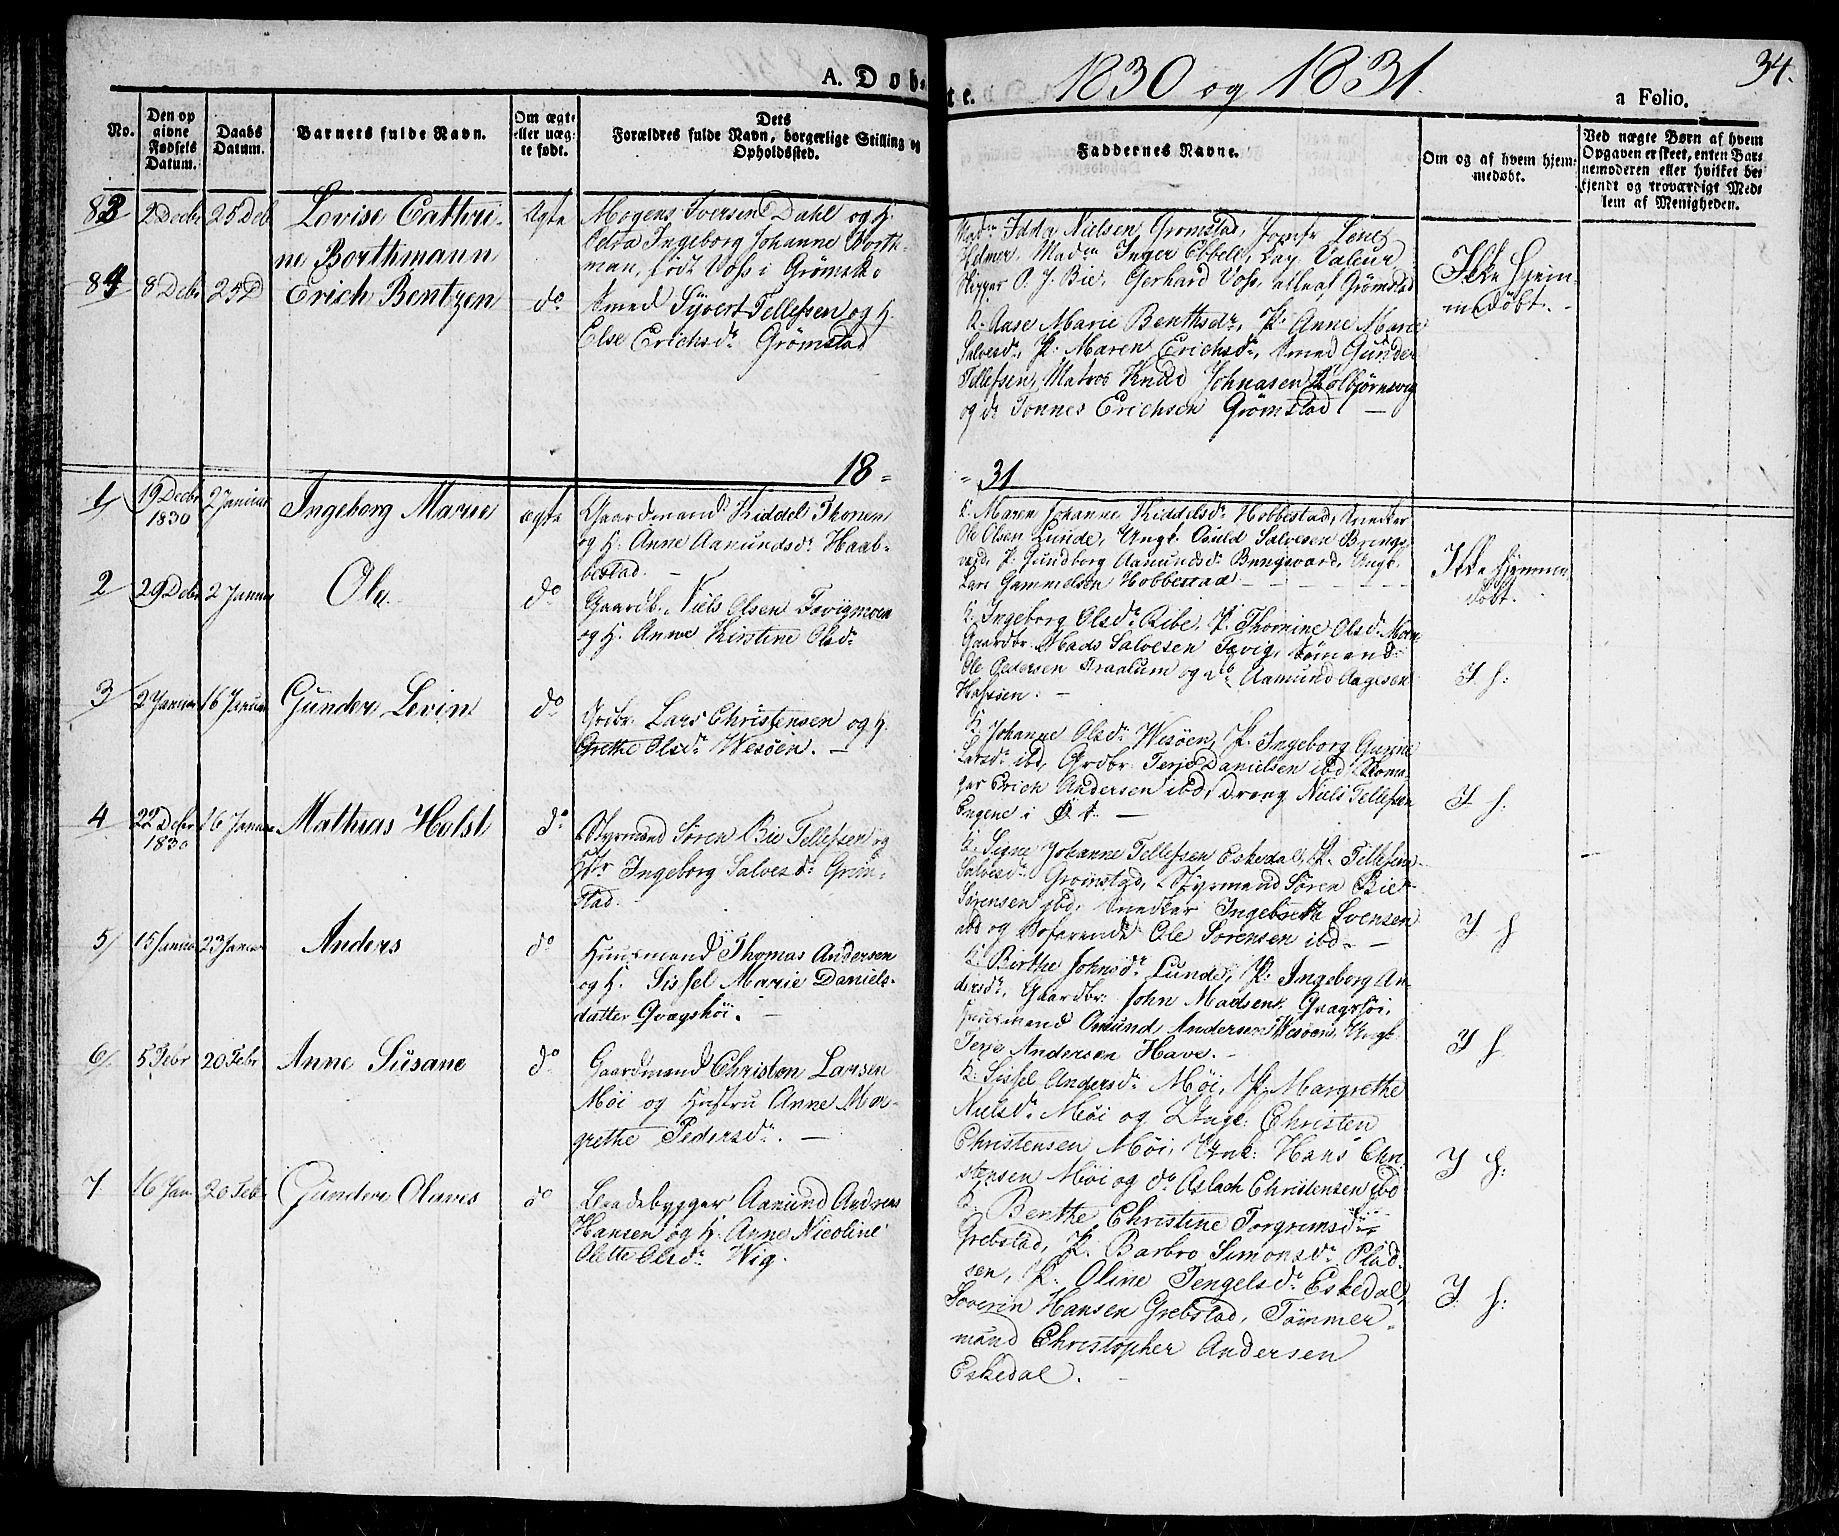 A. Døbte.
1830 og 1831.
a Folio.
34.
No.
Den op
givne
Fødsels
Datum.
Daabs
Datum.
Barnets fulde Navn.
Om ægte
eller uæg-
te født.
Dets
Forældres fulde Navn, borgerlige Stilling og
Opholdssted.
Faddernes Navne.
Om og af hvem hjem-
medøbt.
Ved uægte Børn af hvem
Opgaven er skeet, enten Bar-
nemoderen eller hvilket be-
kjendt og troværdigt Med-
lem af Menigheden.
83
2 Decbr
25 Deb
Lovise Cathri-
ne Borthmann
Ægte
Mogens Iversen Dahl og H.
Edva Ingeborg Johanne Borth-
man, født Voss i Grømst.
Mad. Idda Nielsen Grømstad, Jomfr Lene
Holmer, Madm Inger Ebbell, Cay Valeur
Skipper O. J. Bie, Gerhard Voss, alle af Grømstad
Ikke Hjem-
medøbt.
84
8 Debr
25 D
Erich Bentzen
do
Smed Syvert Tellefsen og H.
Else Erichsdr Grømstad
K. Anne Marie Benthsdr, P. Anne Marie
Salvesdr, P. Maren Erichsdr, Smed Gunder
Tellefsen, Matros Knud Johnasen Kolbjørnsvig
og do Tønnes Erichsen Grømstad
18 =
= 31
1
19 Decbr
1830
2 Januar
Ingeborg Marie
ægte
Gaardmand Kiddel Thomen
og H. Anne Aamundsdr Haab-
bestad.
K. Maren Johanne Kiddelsdr Hobbestad, Snedker
Ole Olsen Lunde, Ungk. Osuld Salvesen Brings-
værd, P. Gundborg Aamundsdr Bringsværd, Ungk.
Lars Gammelsen Hobbestad
Ikke hjemme
døbt.
2
29 Debr
2 Januar
Ole
do
Gaardb. Niels Olsen Tøvigmoen
og H. Anne Kirstine Olsdr
K. Ingeborg Olsdr Ribe, P. Thomine Olsdr Moen
Gaardbr. Mads Salvesen Tøvig, Sømand
Ole Pedersen Fraalum og do Aamund Aagesen
I h:
3
2 Januar
16 Januar
Gunder Levin
do
Grdbr. Lars Christensen og H.
Grethe Olsdr Wesøen.
K. Johanne Olsdr Wesøen, P. Ingeborg Gurine
Larsdr ibd, Grdbr. Terje Danielsen ibd
Erich Andersen ibd, Dreng Niels Tellefsen
Engene i Ø. t.
I h:
4
22 Debr
1830
16 Januar
Mathias Holst
do
Styrmand Søren Bie Tellefsen og
Hst. Ingeborg Salvesdr Grøm-
stad.
K. Signe Johanne Tellefsen Eskedal, P. Tellefine
Salvesdr Grømstad, Styrmand Søren Bie
Sørensen ibd, Snedker Ingebreth Svensen
ibd og Søfarende Ole Sørensen ibd.
I h
5
15 Januar
23 Januar
Anders
do
Huusmand Thomas Andersen
og H. Sissel Marie Daniels-
datter Qvagshøi.
K. Birthe Johnsdr Lunde, P. Ingeborg An-
dersdr, Gaardbr: John Madsen Qvagshøi,
Huusmand Omund Andersen Wesøen, Ungk
Terje Andersen Have.
I h
6
5 Febr
20 Febr
Anne Susane
do
Gaardmand Christen Larsen
Møi og Hustru Anne Mar-
grethe Pedersdr.
K. Sissel Andersdr Møi, P. Margrethe
Nielsdr Møi og Ungk: Christen
Christensen Møi, Ungk: Hans Chri-
stensen Møi og do Aslach Christensen ibd
I h:
7
16 Jan
20 Febr
Gunder Olaves
do
Baadebygger Aamund Andreas
Hansen og H. Anne Nicoline
Olette Olsdr Wig.
K. Benthe Christine Torgrimsdr
Grebstad, P. Barbro Simonsdr Plad-
sen, P. Oline Tengelsdr Eskedal,
Soverin Hansen Grebstad, Tømmer-
mand Christopher Andersen
Eskedal.
I h: